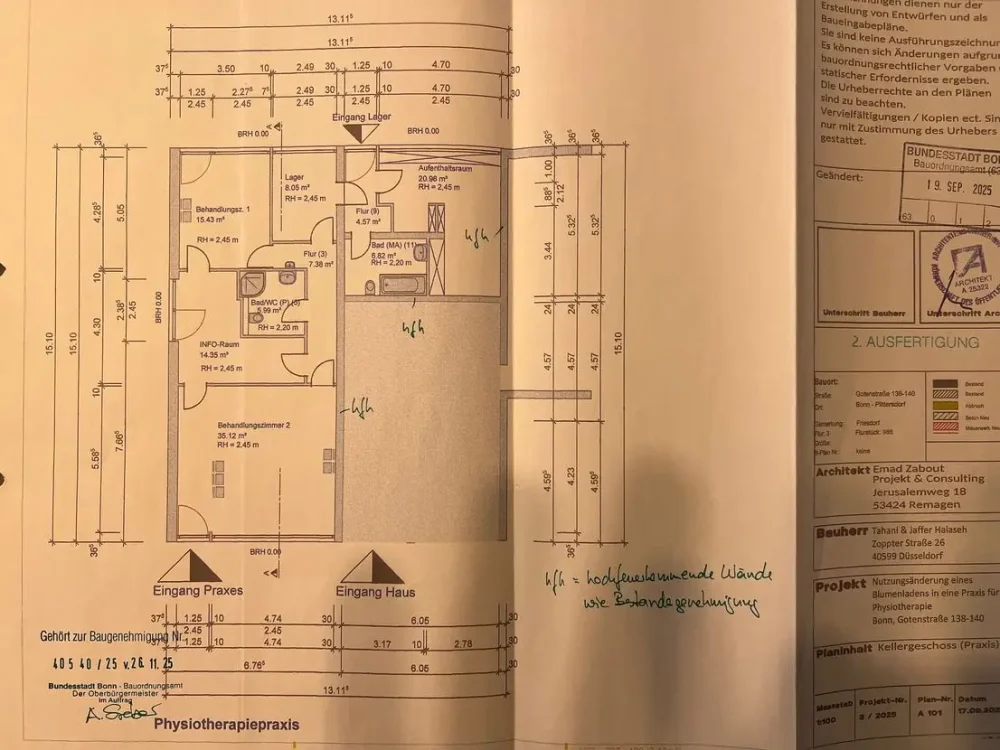 13.11⁵
13.11⁵
37⁵ 3.50 10 2.49 30 1.25 10 4.70 30
37⁵ 1.25 2.27⁵ 7⁵ 2.49 30 1.25 10 4.70 30
2.45 2.45 2.45 2.45 2.45
Eingang Lager
BRH 0.00
A
BRH 0.00
Lager
8.05 m²
RH = 2,45 m
Aufenthaltsraum
20.98 m²
RH = 2,45 m
Behandlungsz. 1
15.43 m²
RH = 2,45 m
Flur (9)
4.57 m²
hfh
Flur (3)
7.38 m²
Bad (MA) (11)
6.62 m²
RH = 2,20 m
Bad/WC (P)
5.99 m²
RH = 2,20 m
hfh
INFO-Raum
14.35 m²
RH = 2,45 m
BRH 0.00
hfh
Behandlungszimmer 2
35.12 m²
RH = 2,45 m
15.10
15.10
36⁵ 4.28⁵ 10 4.30 10 5.58⁵ 36⁵
5.05 2.38⁵ 7.66⁵
2.45
36⁵ 1.00 88⁵ 3.44 24 4.57 4.59⁵
2.12
36⁵ 5.32⁵ 24 4.57 4.23 36⁵
36⁵ 5.32⁵ 24 4.57 4.59⁵
15.10
BRH 0.00
A
Eingang Praxes
Eingang Haus
hfh = hochfeuerhemmende Wände
wie Bestandsgenehmigung
37⁵ 1.25 10 4.74 30 6.05 30
2.45 2.45
37⁵ 1.25 10 4.74 30 3.17 10 2.78 30
6.76⁵ 6.05 30
13.11⁵
Gehört zur Baugenehmigung Nr.
40540/25 v. 26.11.25
Bundesstadt Bonn - Bauordnungsamt
Der Oberbürgermeister
Im Auftrag
Physiotherapiepraxis
dienen nur der
Erstellung von Entwürfen und als
Baueingabepläne.
Sie sind keine Ausführungszeichnun
Es können sich Änderungen aufgru
bauordnungsrechtlicher Vorgaben
statischer Erfordernisse ergeben.
Die Urheberrechte an den Plänen
sind zu beachten.
Vervielfältigungen / Kopien ect. Sin
nur mit Zustimmung des Urhebers
gestattet.
Geändert:
BUNDESSTADT BO
Bauordnungsamt (63
19. SEP. 2025
63 0 1 2
ARCHITEKT
A 25323
Unterschrift Bauherr
Unterschrift Arc
2. AUSFERTIGUNG
Bauort:
Straße: Gotenstraße 138-140
Ort: Bonn - Plittersdorf
Gemarkung: Friesdorf
Flur: 3 Flurstück: 986
Größe:
B-Plan Nr.: keine
Bestand
Bestand
Abbruch
Architekt Emad Zabout
Projekt & Consulting
Jerusalemweg 18
53424 Remagen
Bauherr Tahani & Jaffer Halaseh
Zoppter Straße 26
40599 Düsseldorf
Projekt Nutzungsänderung eines
Blumenladens in eine Praxis für
Physiotherapie
Bonn, Gotenstraße 138-140
Planinhalt Kellergeschoss (Praxis)
Massstab Projekt-Nr. Plan-Nr. Datum
1:100 2 / 2025 A 101 17.09.202